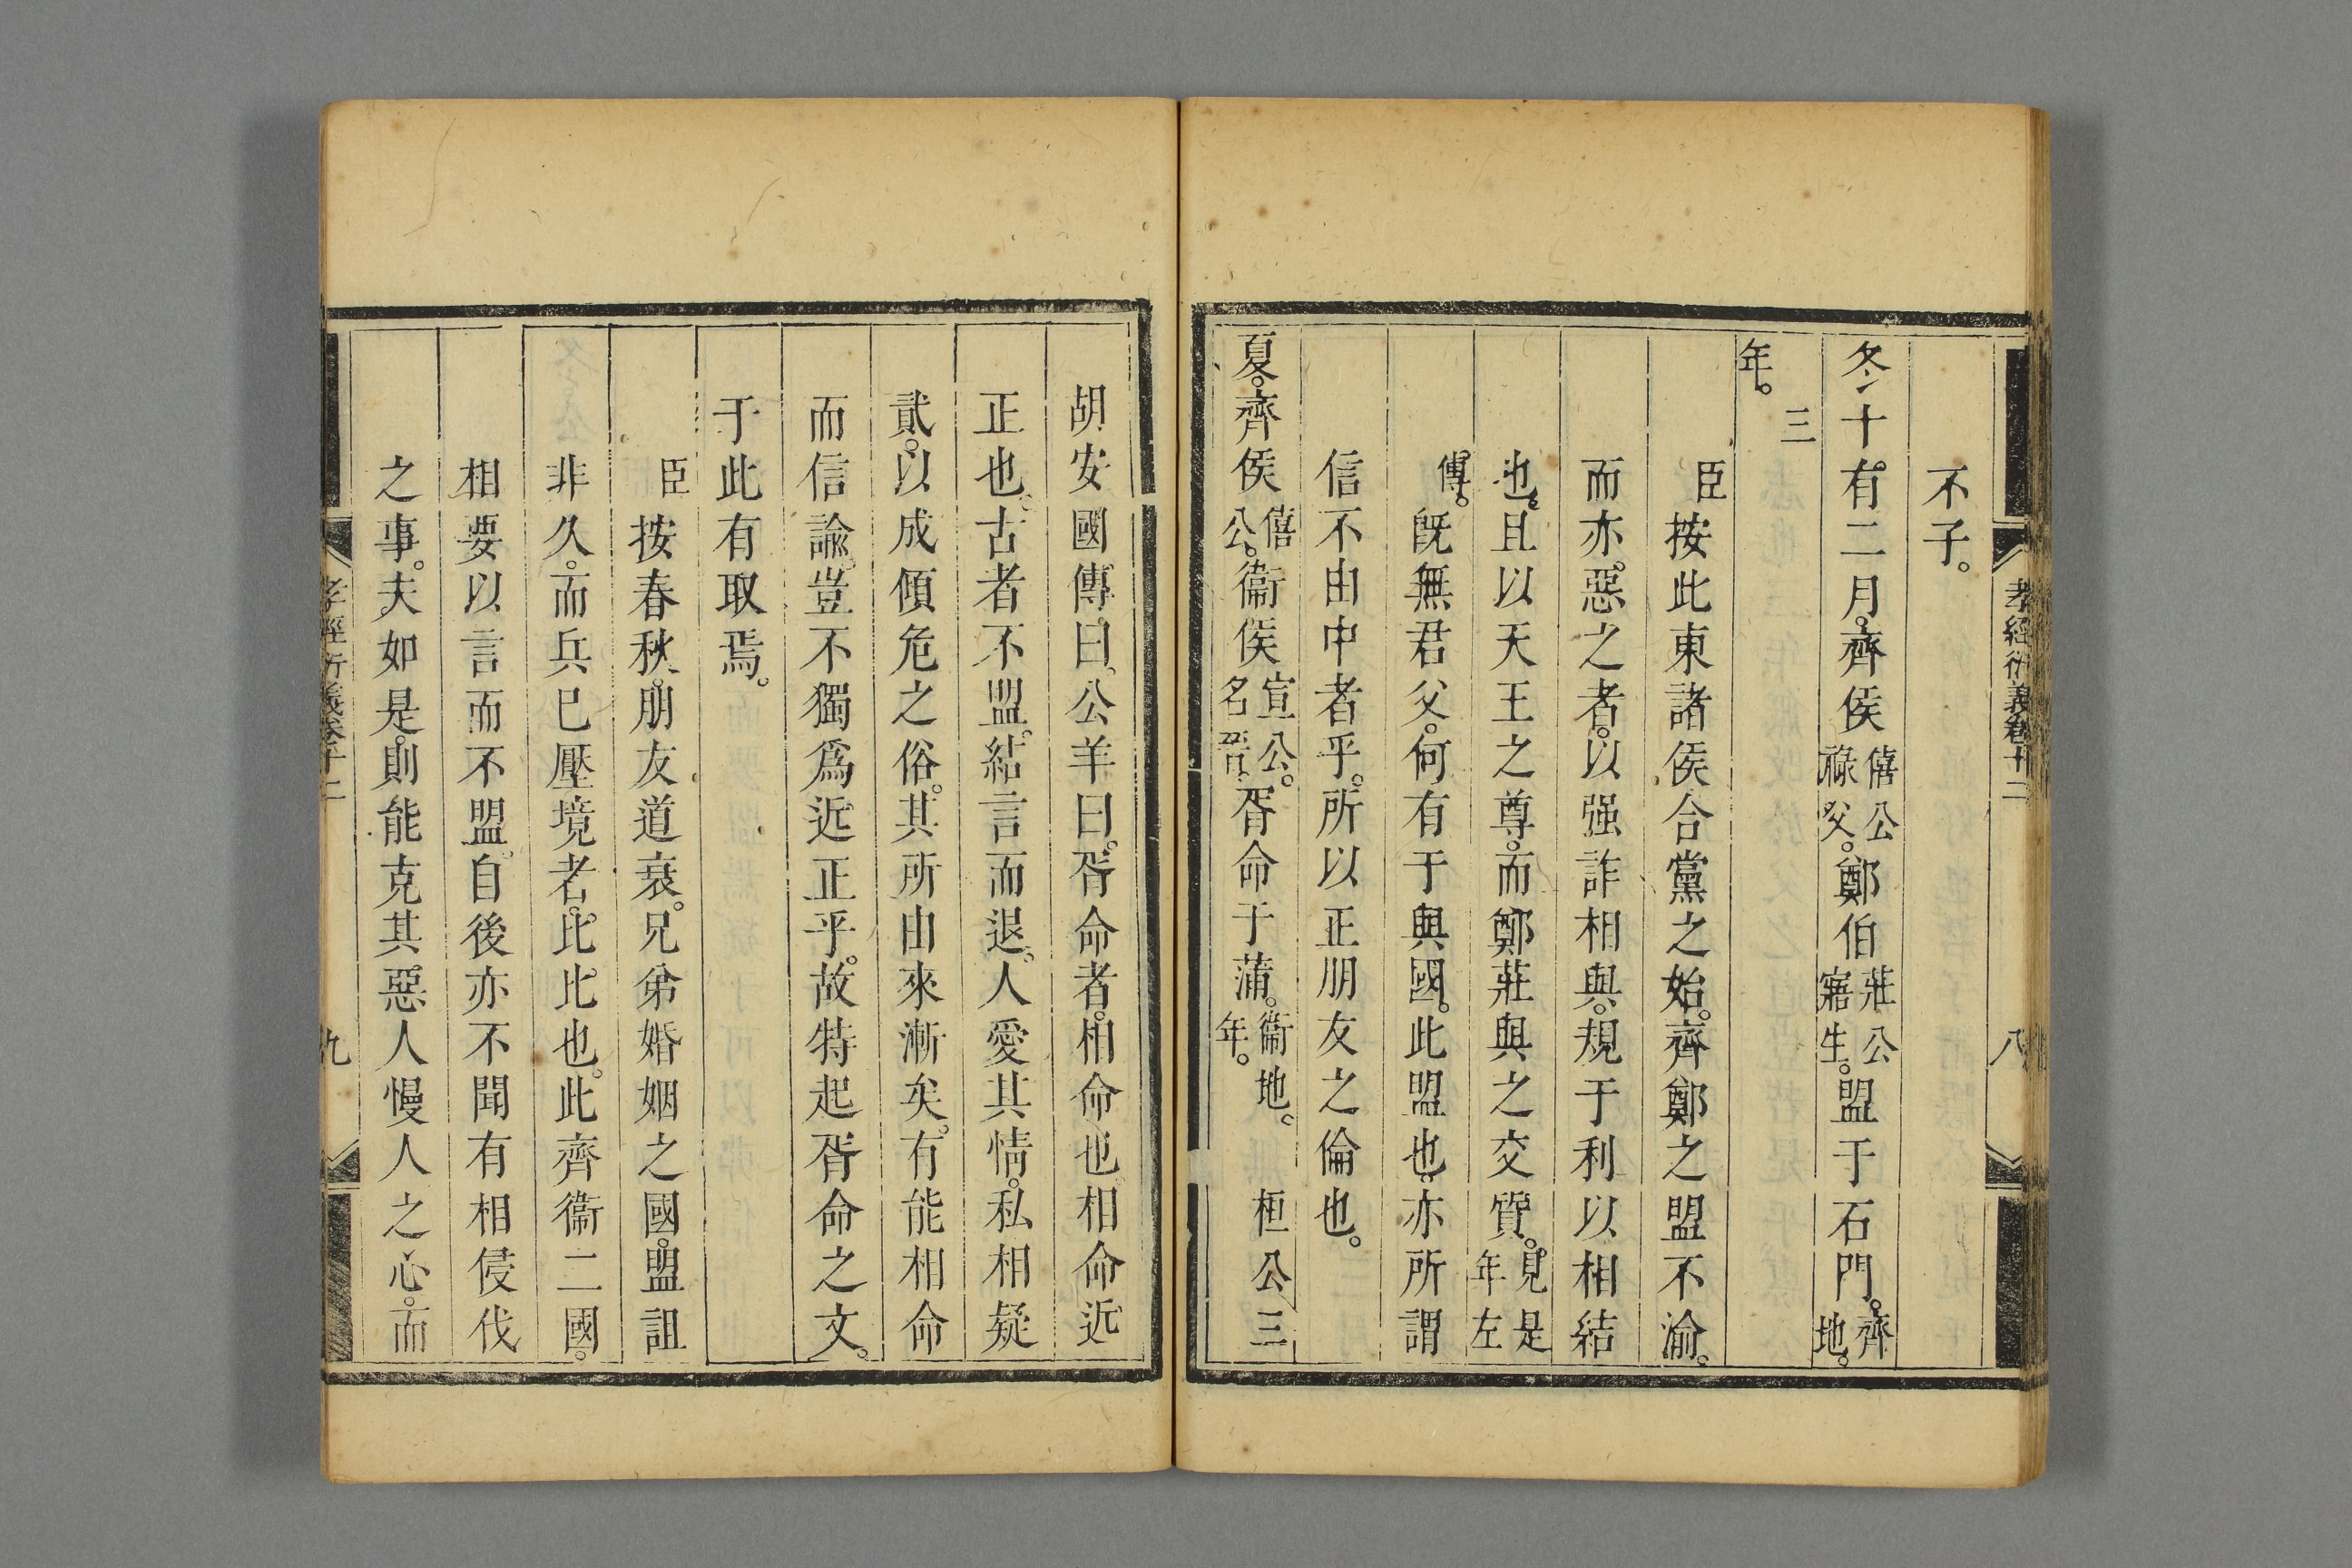 孝經衍義卷十二
八
不子。
冬十有二月。齊侯僖公祿父。鄭伯莊公寤生。盟于石門。齊地。
三年。
臣按此東諸侯合黨之始。齊鄭之盟不渝。
而亦惡之者。以强詐相與。規于利以相結
也。且以天王之尊。而鄭莊與之交質。見是年左
傳。既無君父。何有于與國。此盟也。亦所謂
信不由中者乎。所以正朋友之倫也。
夏。齊侯僖公。衞侯宣公。名晉。胥命于蒲。衞地。桓公三年。
胡安國傳曰。公羊曰。胥命者。相命也。相命近
正也。古者不盟。結言而退。人愛其情。私相疑
貳。以成傾危之俗。其所由來漸矣。有能相命
而信諭。豈不獨爲近正乎。故特起胥命之文。
于此有取焉。
臣按春秋。朋友道衰。兄弟婚姻之國。盟詛
非久。而兵已壓境者。比比也。此齊衞二國。
相要以言而不盟。自後亦不聞有相侵伐
之事。夫如是。則能克其惡人慢人之心。而
孝經衍義卷十二
九